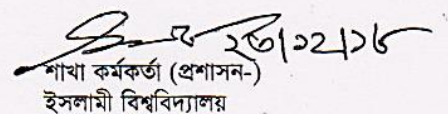 ২৩/১২/১৮
শাখা কর্মকর্তা (প্রশাসন-)
ইসলামী বিশ্ববিদ্যালয়